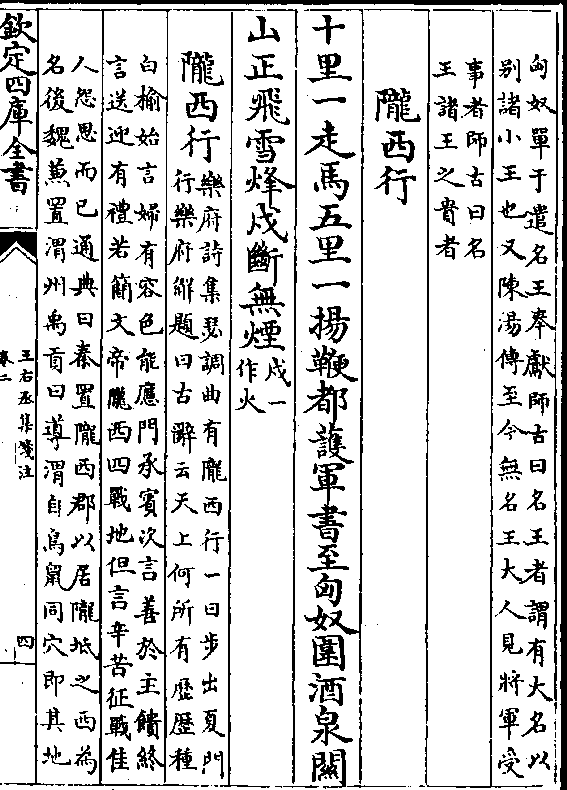 匈奴單于遣名王奉獻師古曰名王者謂有大名以
别諸小王也又陳湯傳至今無名王大人見將軍受
事者師古曰名
王諸王之貴者
隴西行
十里一走馬五里一揚鞭都護軍書至匈奴圍酒泉關
山正飛雪烽戍斷無煙
戍一
作火
隴西行
樂府詩集瑟調曲有隴西行一曰步出夏門
行樂府解題曰古辭云天上何所有歴歴種
白榆始言婦有容色能應門承賓次言善於主饋終
言送迎有禮若簡文帝隴西四戰地但言辛苦征戰佳
人怨思而已通典曰秦置隴西郡以居隴坻之西為
名後魏兼置渭州禹貢曰導渭自鳥鼠同穴即其地
欽定四庫全書
王右丞集箋注
卷二
四